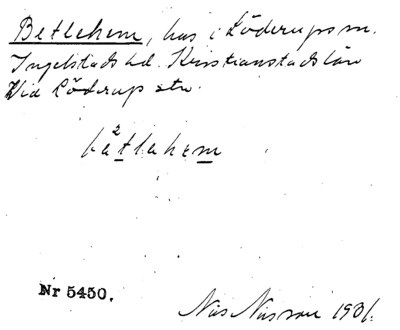 Betlehem, hus i Löderups sn.
Ingelstads hd. Kristianstads län
Vid Löderup stn.
bä²tlehem
Nr 5450.
Nils Nilsson 1931.